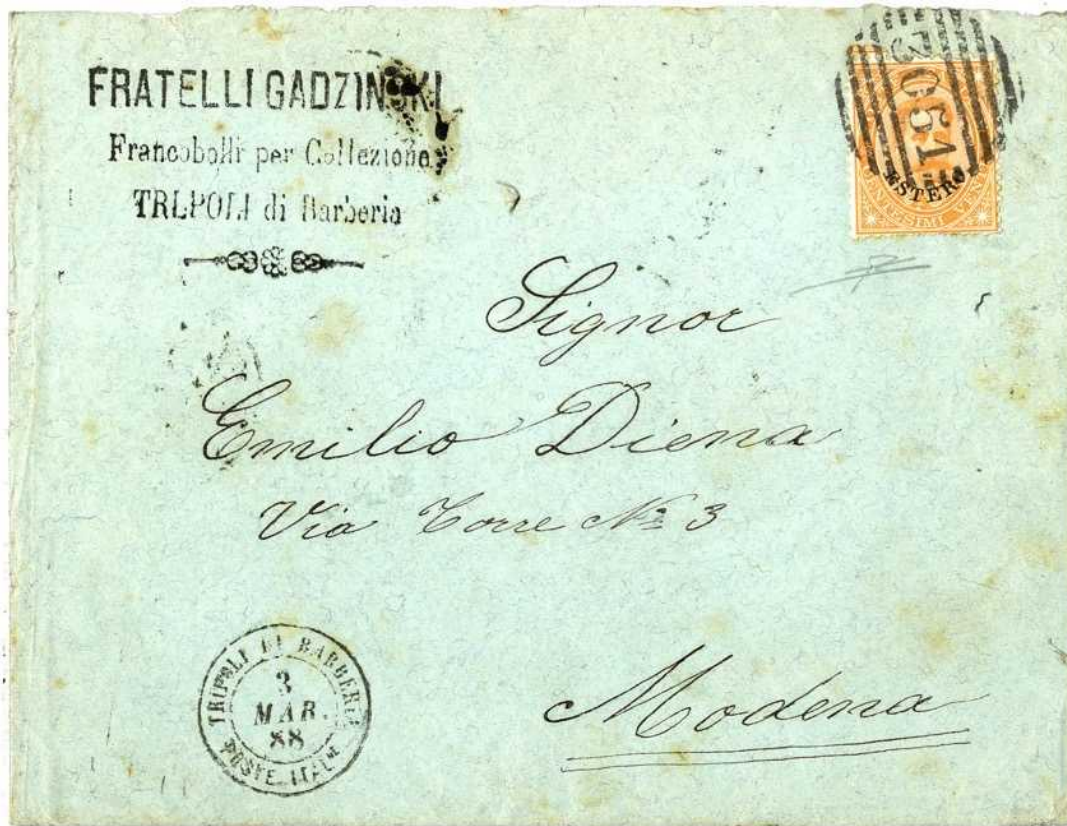 FRATELLI GADZINSKI
Francobolli per Collezione
TRIPOLI di Barberia
3051
ESTERO
CENTESIMI VENTI
Signor
Emilio Diena
Via Torre No 3
Modena
TRIPOLI DI BARBERIA
3
MAR.
88
POSTE ITALNE